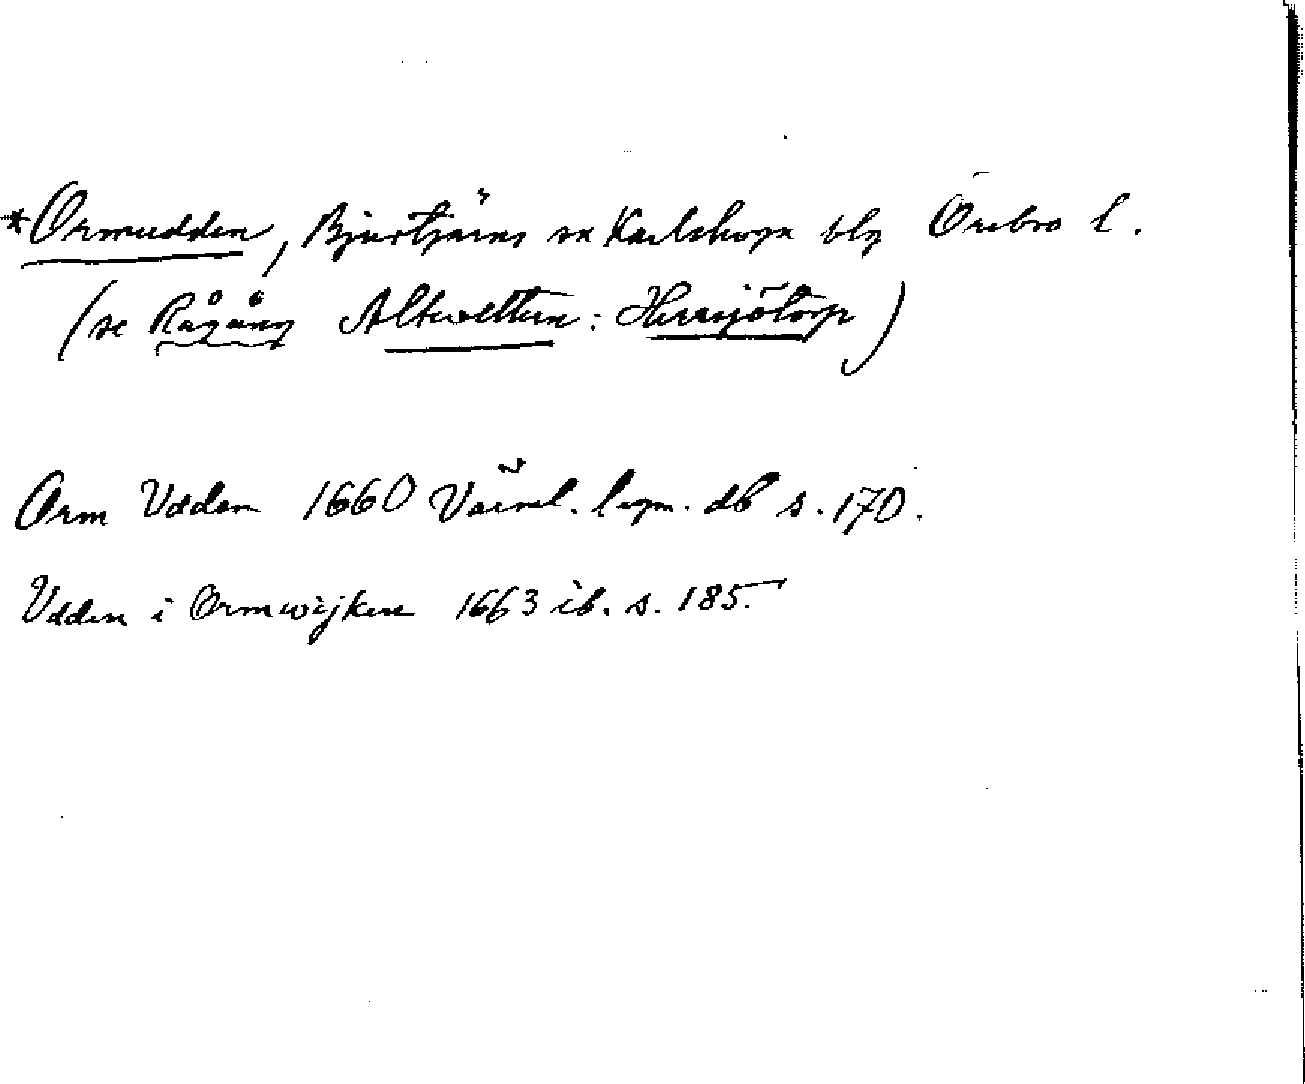 *Ormudden, Bjurtjärns sn Karlskoga blg Örebro l.
(se Rågång Alkvettern: Herrsjötorp)
Orm Udden 1660 Värml. lagm. db s. 170.
Udden i Ormwijken 1663 ib. s. 185.